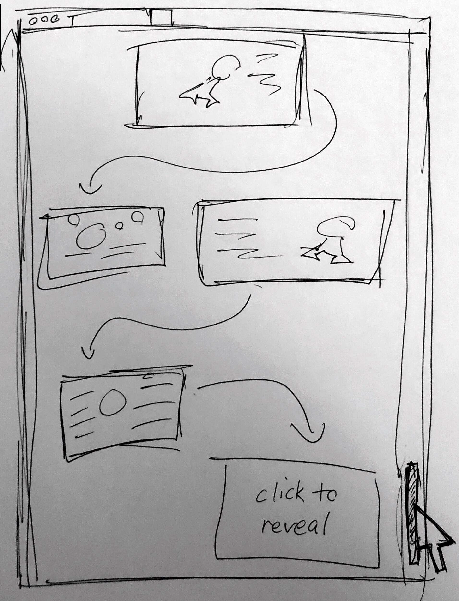 click to
reveal